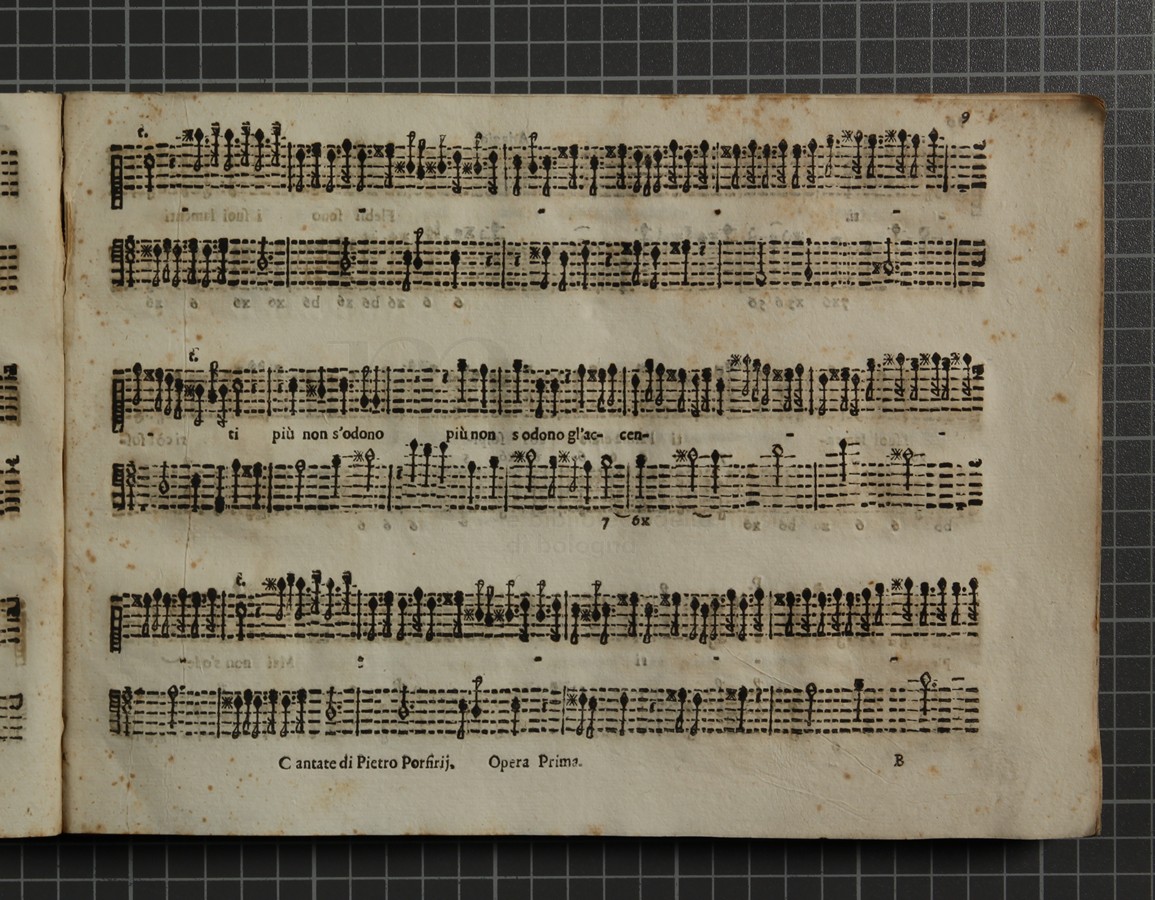 9
t.
t.
ti più non s'odono più non s odono gl'ac- cen-
7 6x
t.
Cantate di Pietro Porfirij. Opera Prima. B